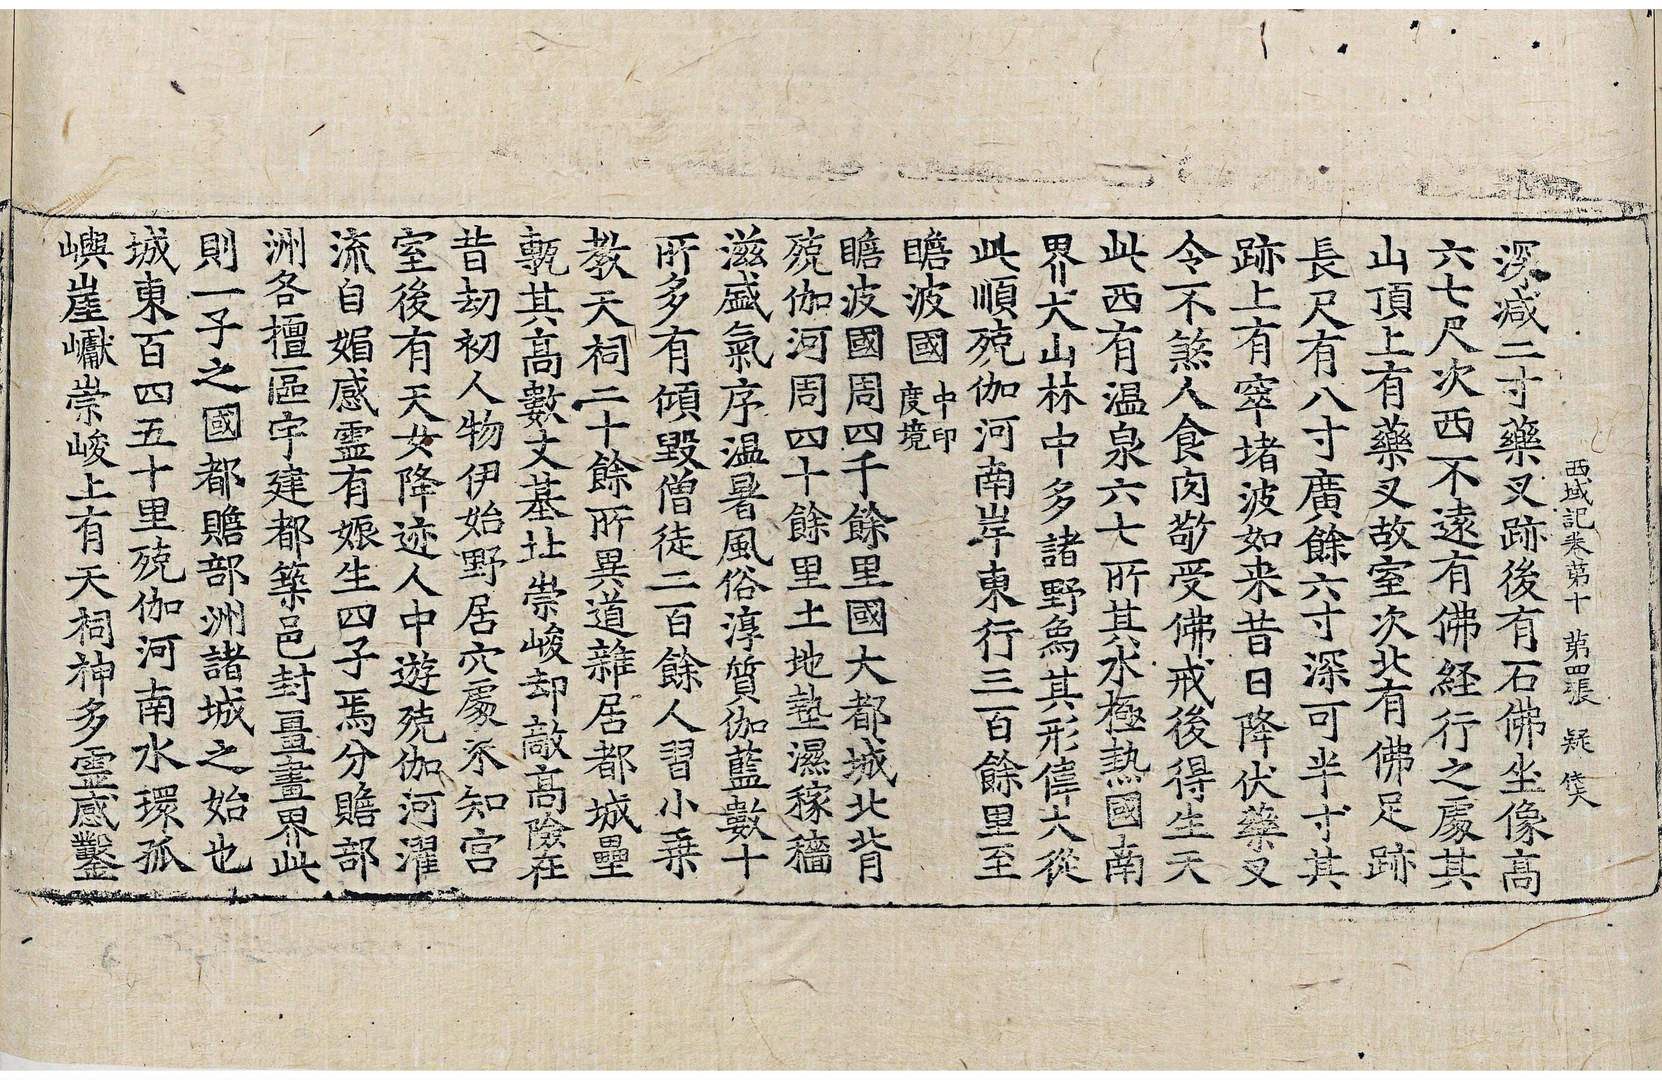 西域記卷第十 第四張 疑
深減二寸藥叉跡後有石佛坐像高
六七尺次西不遠有佛経行之處其
山頂上有藥叉故室次北有佛足跡
長尺有八寸廣餘六寸深可半寸其
跡上有窣堵波如来昔日降伏藥叉
令不煞人食肉敬受佛戒後得生天
此西有温泉六七所其水極熱國南
界大山林中多諸野鳥其形偉大從
此順殑伽河南岸東行三百餘里至
瞻波國中印度境
瞻波國周四千餘里國大都城北背
殑伽河周四十餘里土地墊濕稼穡
滋盛氣序温暑風俗淳質伽藍數十
所多有傾毀僧徒二百餘人習小乗
教天祠二十餘所異道雜居都城壘
甎其高數丈基址崇峻却敵高險在
昔劫初人物伊始野居穴處未知宫
室後有天女降迹人中遊殑伽河濯
流自媚感霊有娠生四子焉分贍部
洲各擅區宇建都築邑封畺畫界此
則一子之國都贍部洲諸城之始也
城東百四五十里殑伽河南水環孤
嶼崖巘崇峻上有天祠神多霊感鑿